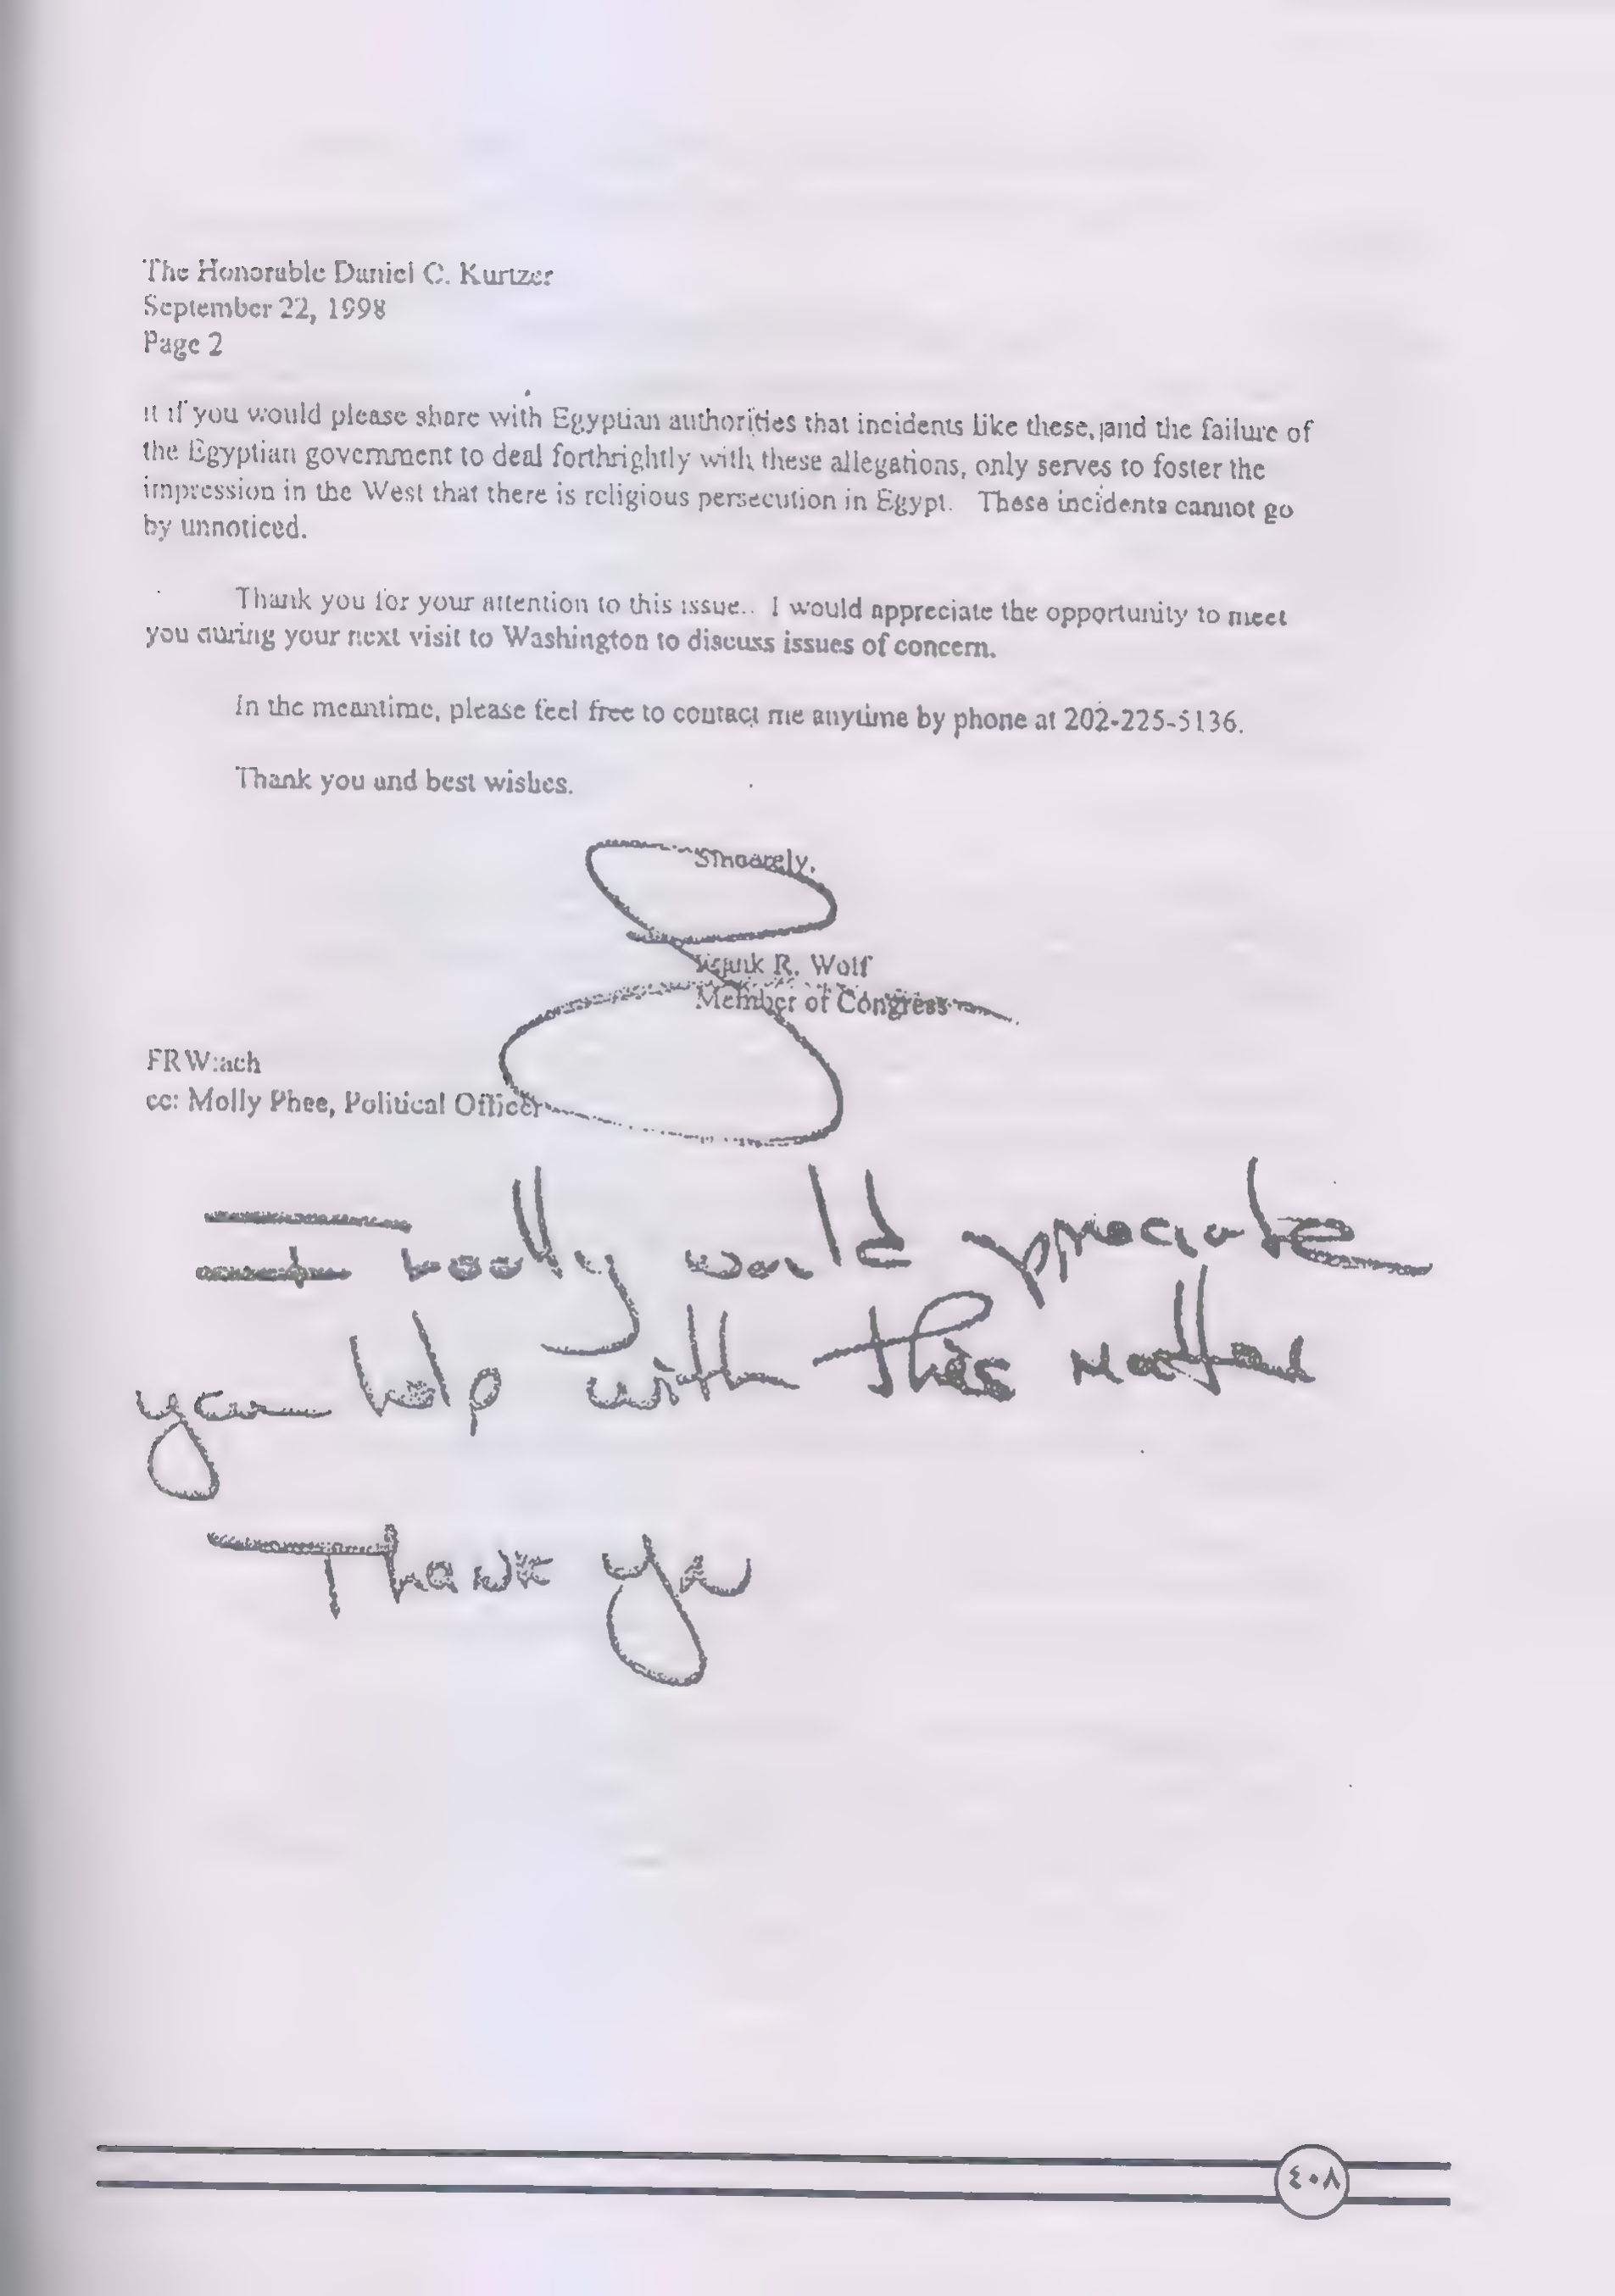 The Honorable Daniel C. Kurtzer
September 22, 1998
Page 2
it if you would please share with Egyptian authorities that incidents like these, and the failure of
the Egyptian government to deal forthrightly with these allegations, only serves to foster the
impression in the West that there is religious persecution in Egypt. These incidents cannot go
by unnoticed.
Thank you for your attention to this issue. I would appreciate the opportunity to meet
you during your next visit to Washington to discuss issues of concern.
In the meantime, please feel free to contact me anytime by phone at 202-225-5136.
Thank you and best wishes.
Sincerely,
Frank R. Wolf
Member of Congress
FRW:ach
cc: Molly Phee, Political Officer
really would appreciate
your help with this matter
Thank you
٤٠٨